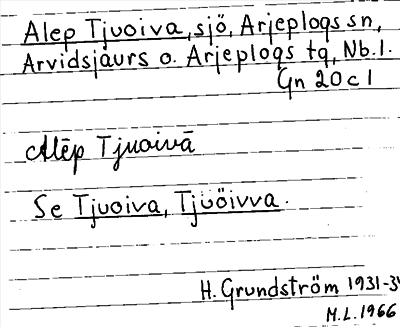 Alep Tjuoiva, sjö, Arjeplogs sn,
Arvidsjaurs o. Arjeplogs tg, Nb.l.
Gn 20 c 1
Alēp Tjuoivā
Se Tjuoiva, Tjuöivva.
H. Grundström 1931-34
M.L. 1966